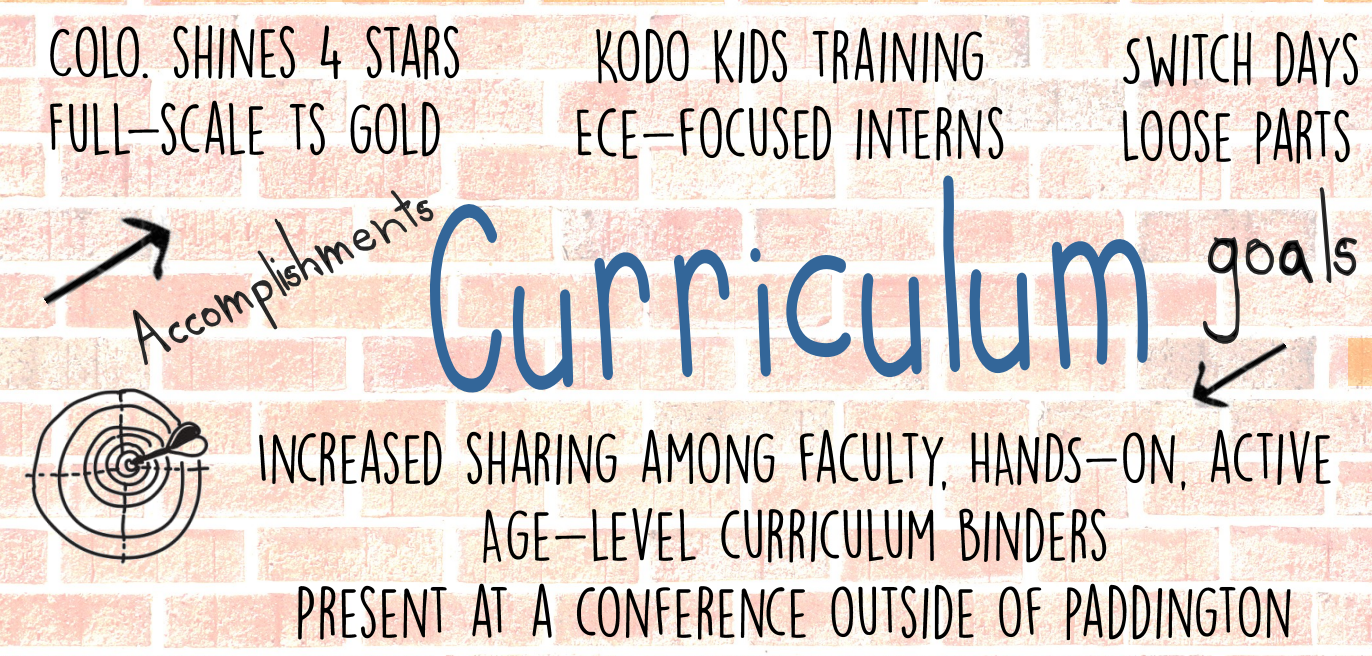 COLO. SHINES 4 STARS
FULL-SCALE TS GOLD
KODO KIDS TRAINING
ECE-FOCUSED INTERNS
SWITCH DAYS
LOOSE PARTS
Accomplishments
Curriculum
goals
INCREASED SHARING AMONG FACULTY, HANDS-ON, ACTIVE
AGE-LEVEL CURRICULUM BINDERS
PRESENT AT A CONFERENCE OUTSIDE OF PADDINGTON